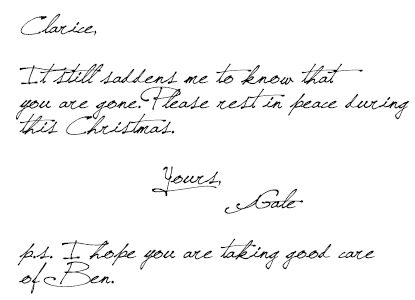 Clarice,
It still saddens me to know that
you are gone. Please rest in peace during
this Christmas.
Yours,
Gale
p.s. I hope you are taking good care
of Ben.